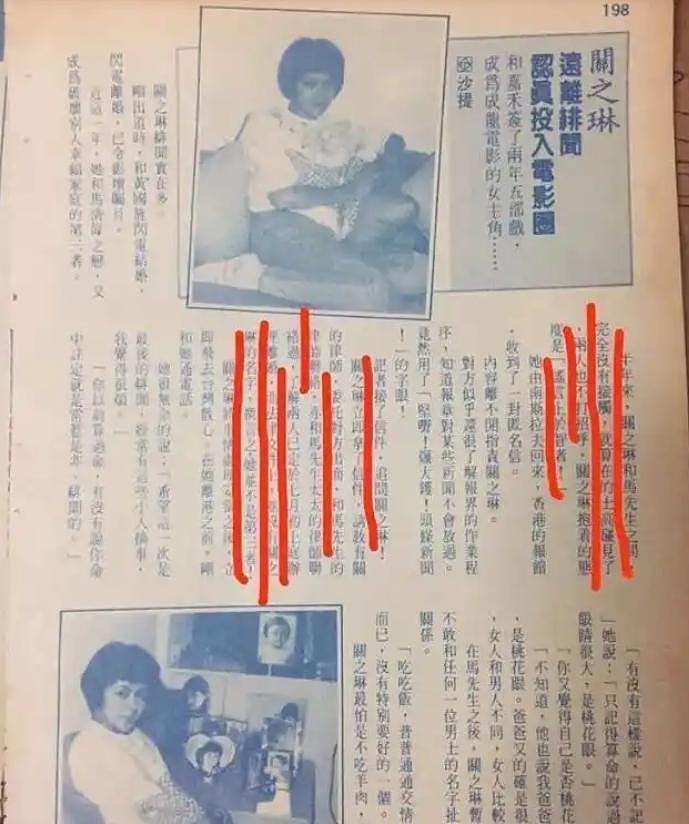 198
關之琳
遠離緋聞
認眞投入電影圈
和嘉禾簽了兩年五部戲，
成爲成龍電影的女主角……
沙提
關之琳緋聞實在多。
剛出道時，和黃國旌閃電結婚，
閃電離婚，已令影壇矚目。
近這一年，她和馬清偉之戀，又
成爲破壞別人幸福家庭的第三者。
半年來，關之琳和馬先生之間，
完全沒有接觸，就算在的士高碰見了
，兩人也不打招呼，關之琳抱着的態
度是「謠言止於智者！」
她由南斯拉夫回來，香港的報館
，收到了一封匿名信。
內容離不開指責關之琳。
對方似乎還很了解報界的作業程
序，知道報章對某些新聞不會放過。
竟然用了「緊嘢！爆大鑊！頭條新聞
！」的字眼！
記者接了信件，追問關之琳！
關之琳立即拿了信件，請教有關
的律師，委託對方出面，和馬先生的
律師聯絡，亦和馬先生太太的律師聯
絡過，了解兩人已定於七月初上庭辦
理離婚，而法律文件上，並沒有關之
琳的名字，換言之她並不是第三者！
關之琳將事情處理，當之後，立
即飛去台灣散心，在她離港之前，剛
和她通電話。
她很無奈的說：「希望這一次是
最後的緋聞，經常有這些小人攪事，
我覺得很煩。」
「你以前算過命，有沒有說你命
中註定就是常惹是非，緋聞的。」
「有沒有這樣說，已不記
」她說：「只記得算命的說過
眼睛很大，是桃花眼。」
「你又覺得自己是否桃花
「不知道，他也說我爸爸
是桃花眼。爸爸又的確是很
，女人和男人不同，女人比較
在馬先生之後，關之琳暫
不敢和任何一位男士的名字扯
關係。
「吃吃飯，普普通通交情
而已，沒有特別要好的一個。
關之琳最怕是不吃羊肉，